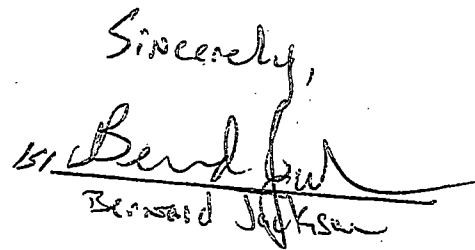 Sincerely,
/s/ Bernard
Bernard Jackson